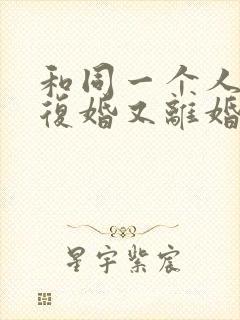 和同一个人
復婚又離婚
星宇紫宸